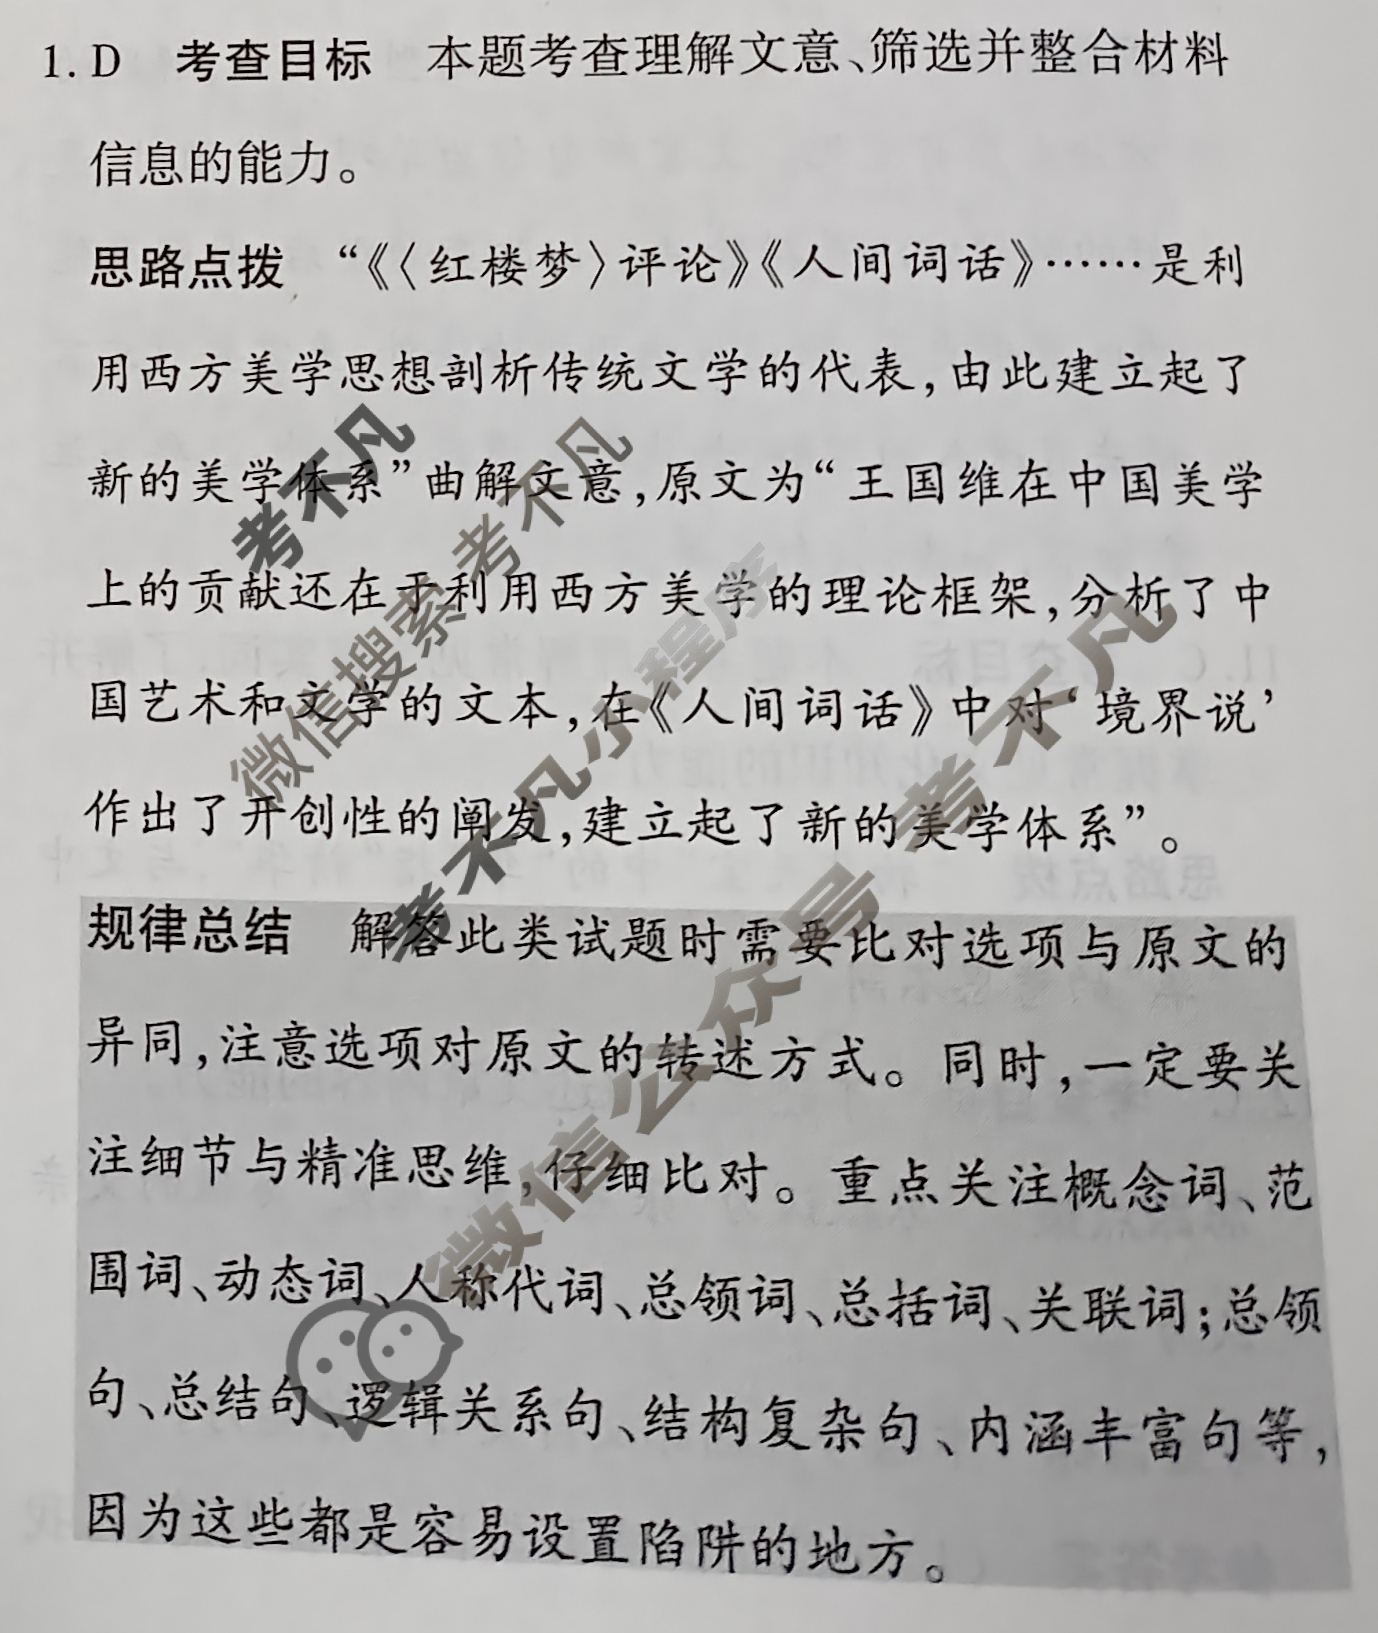 1. D 考查目标 本题考查理解文意、筛选并整合材料
信息的能力。
思路点拨 “《〈红楼梦〉评论》《人间词话》……是利
用西方美学思想剖析传统文学的代表,由此建立起了
新的美学体系”曲解文意,原文为“王国维在中国美学
上的贡献还在于利用西方美学的理论框架,分析了中
国艺术和文学的文本,在《人间词话》中对‘境界说’
作出了开创性的阐发,建立起了新的美学体系”。
规律总结 解答此类试题时需要比对选项与原文的
异同,注意选项对原文的转述方式。同时,一定要关
注细节与精准思维,仔细比对。重点关注概念词、范
围词、动态词、人称代词、总领词、总括词、关联词;总领
句、总结句、逻辑关系句、结构复杂句、内涵丰富句等,
因为这些都是容易设置陷阱的地方。
考不凡
微信搜索 考不凡
考不凡小程序
微信公众号 考不凡